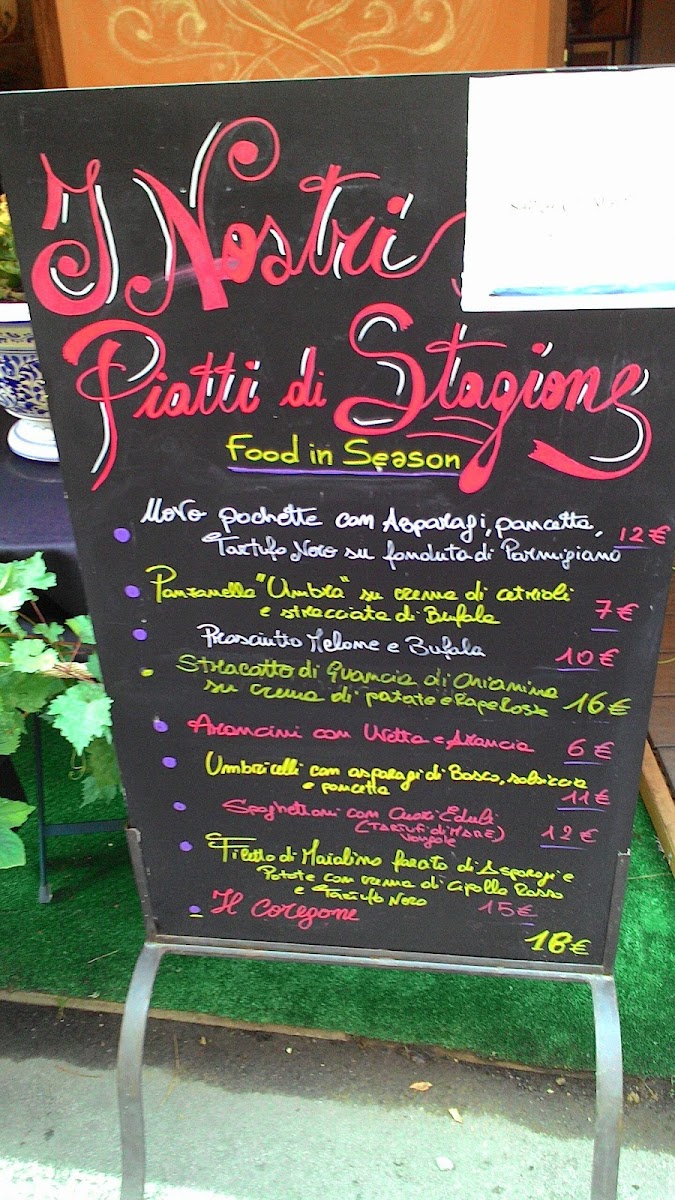 I Nostri
Piatti di Stagione
Food in Season
Uovo pochette con Asparagi, pancetta, 12 €
Tartufo Nero su fonduta di Parmigiano
Panzanella "Umbra" su crema di cetrioli
e stracciata di Bufala 7 €
Prosciutto Melone e Bufala 10 €
Stracotto di Guancia di Chianina
su crema di patate e Rape Rosse 16 €
Arancini con 'Uvetta e Arancia 6 €
Umbricelli con asparagi di Bosco, salsiccia
e pancetta 11 €
Spaghettoni con Cuori Eduli
(TARTUFI di MARE) 12 €
Vongole
Filetto di Maialino farcito di Asparagi e
Patate con crema di cipolla Rossa
e Tartufo Nero 15 €
Il Coregone
18 €